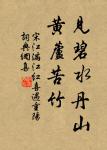 見碧水丹山
黄蘆苦竹
宋江滿江紅喜遇重陽
詞典網集